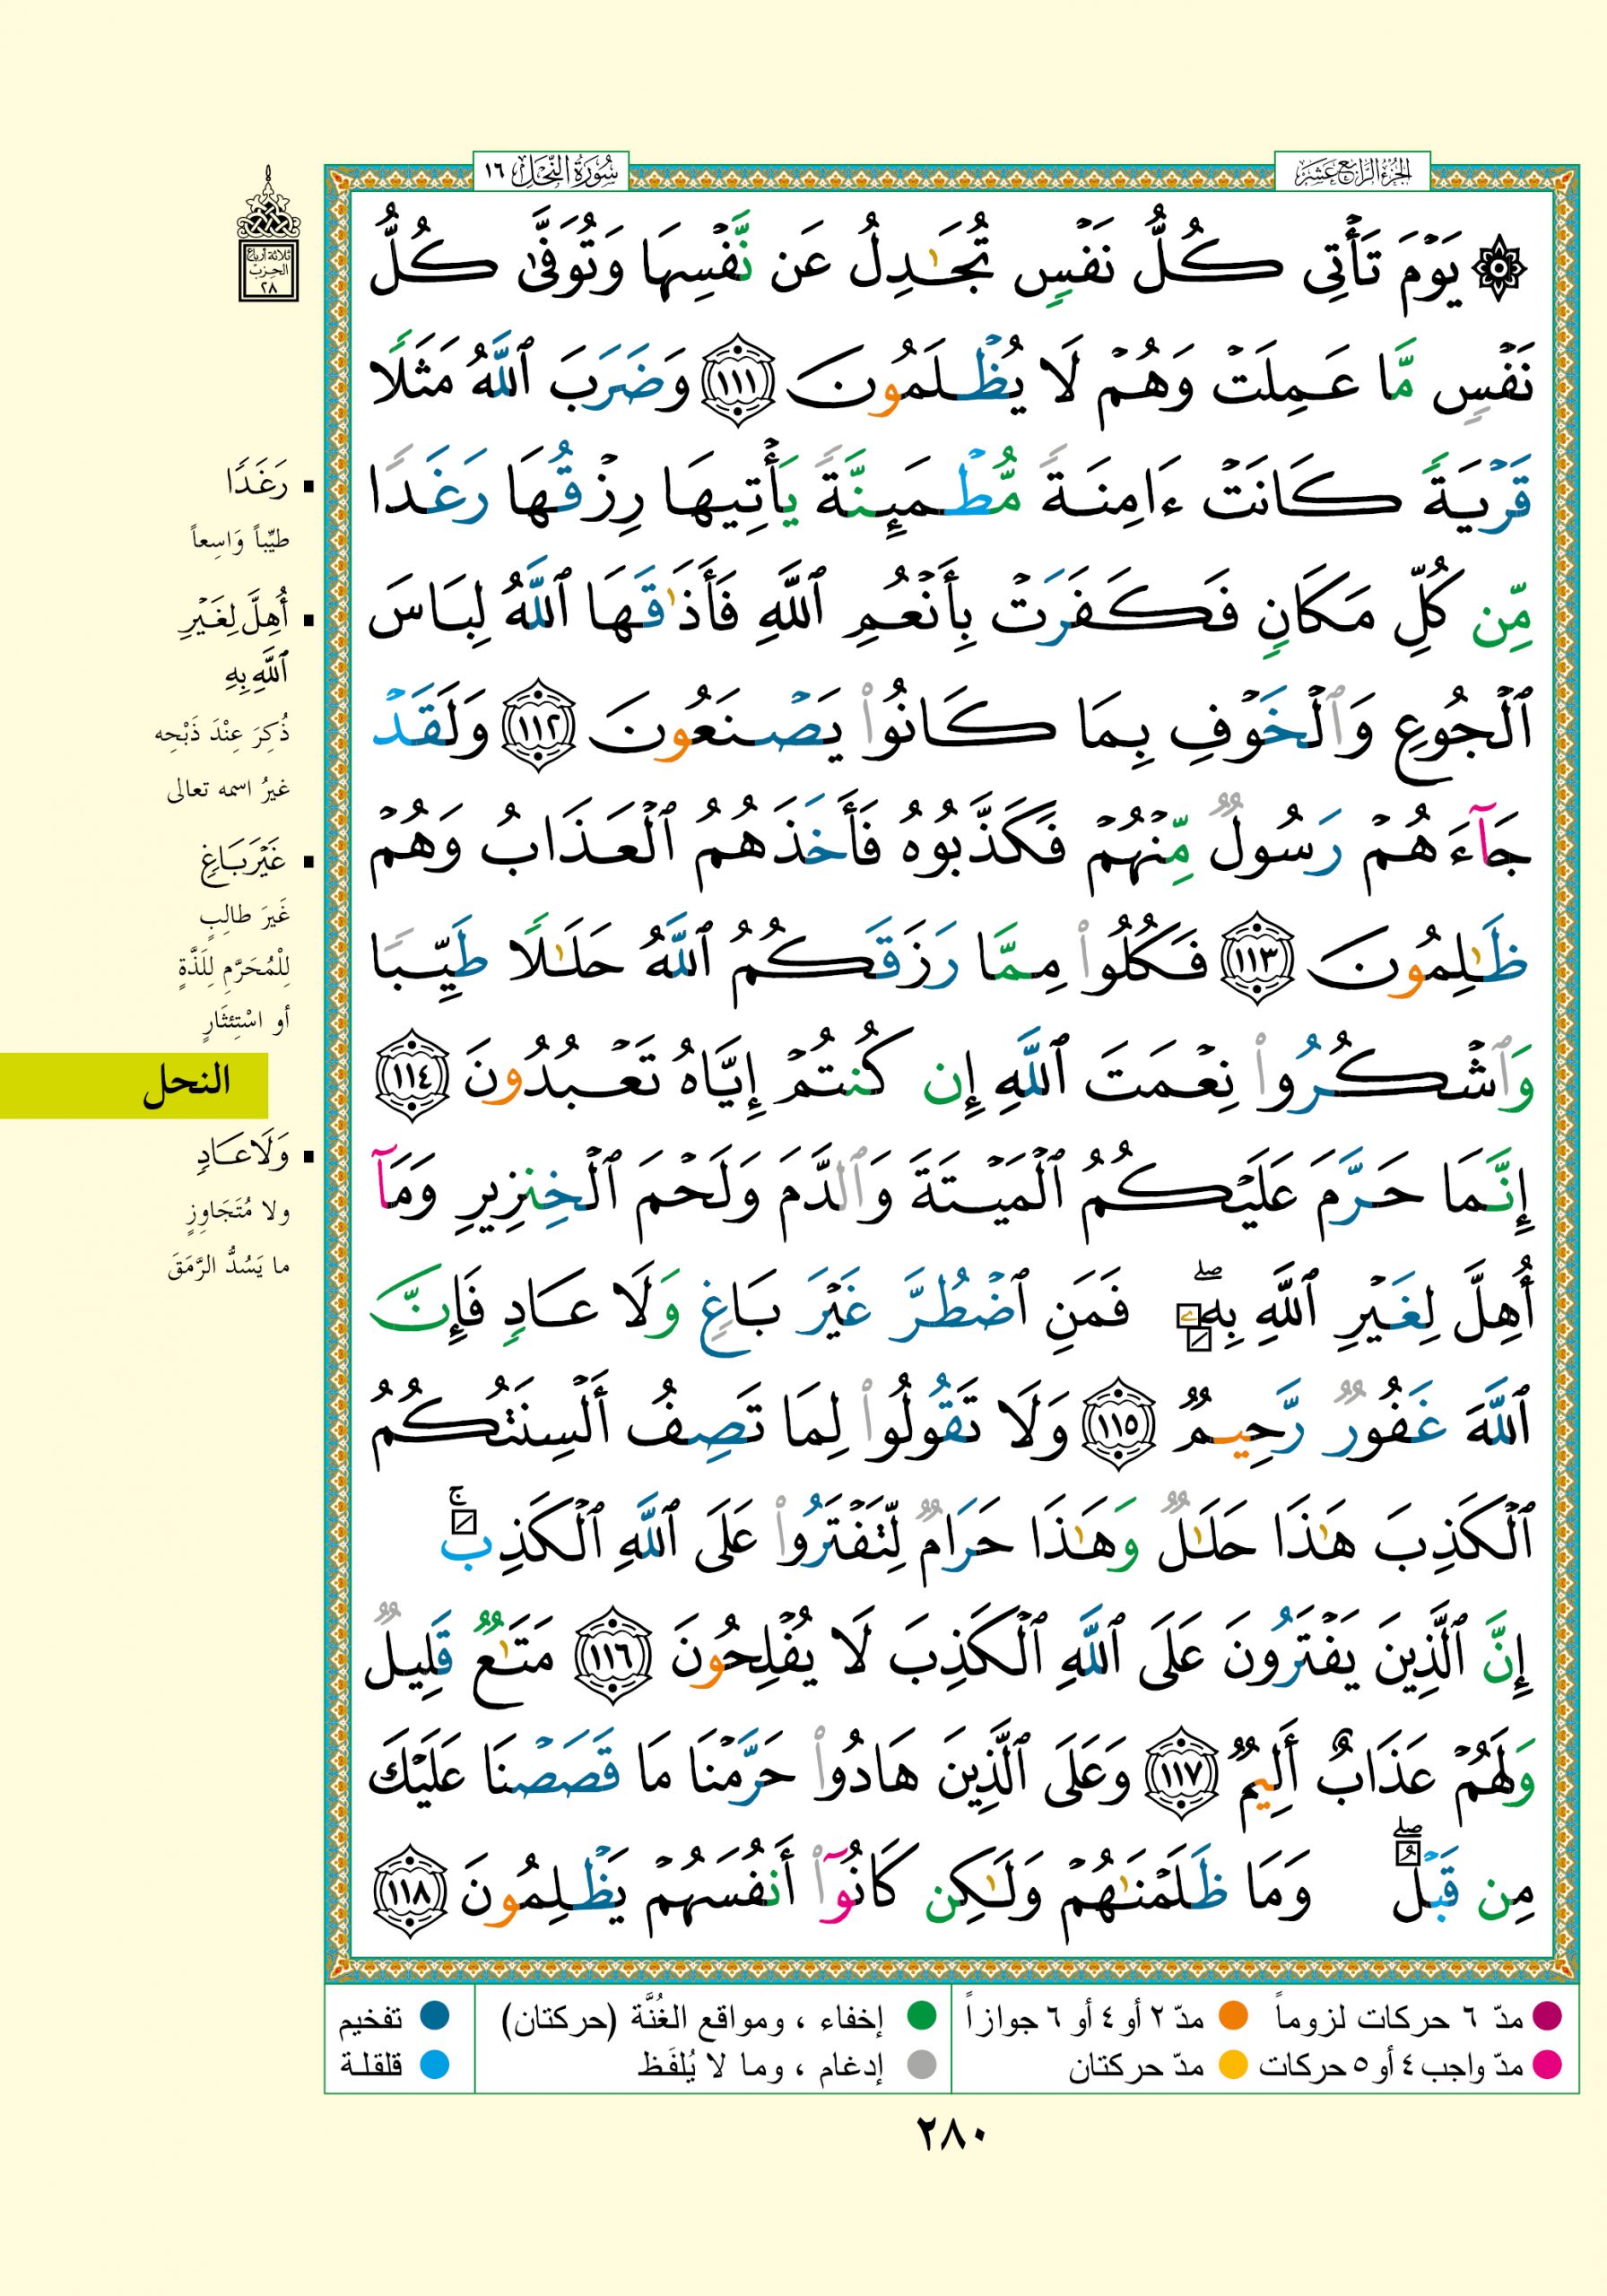 الجزء الرابع عشر
سورة النحل ١٦
۞ يَوْمَ تَأْتِى كُلُّ نَفْسٍ تُجَٰدِلُ عَن نَّفْسِهَا وَتُوَفَّىٰ كُلُّ
نَفْسٍ مَّا عَمِلَتْ وَهُمْ لَا يُظْلَمُونَ ١١١ وَضَرَبَ ٱللَّهُ مَثَلًا
قَرْيَةً كَانَتْ ءَامِنَةً مُّطْمَئِنَّةً يَأْتِيهَا رِزْقُهَا رَغَدًا
مِّن كُلِّ مَكَانٍ فَكَفَرَتْ بِأَنْعُمِ ٱللَّهِ فَأَذَٰقَهَا ٱللَّهُ لِبَاسَ
ٱلْجُوعِ وَٱلْخَوْفِ بِمَا كَانُوا۟ يَصْنَعُونَ ١١٢ وَلَقَدْ
جَآءَهُمْ رَسُولٌ مِّنْهُمْ فَكَذَّبُوهُ فَأَخَذَهُمُ ٱلْعَذَابُ وَهُمْ
ظَٰلِمُونَ ١١٣ فَكُلُوا۟ مِمَّا رَزَقَكُمُ ٱللَّهُ حَلَٰلًا طَيِّبًا
وَٱشْكُرُوا۟ نِعْمَتَ ٱللَّهِ إِن كُنتُمْ إِيَّاهُ تَعْبُدُونَ ١١٤
إِنَّمَا حَرَّمَ عَلَيْكُمُ ٱلْمَيْتَةَ وَٱلدَّمَ وَلَحْمَ ٱلْخِنزِيرِ وَمَآ
أُهِلَّ لِغَيْرِ ٱللَّهِ بِهِۦ ۖ فَمَنِ ٱضْطُرَّ غَيْرَ بَاغٍ وَلَا عَادٍ فَإِنَّ
ٱللَّهَ غَفُورٌ رَّحِيمٌ ١١٥ وَلَا تَقُولُوا۟ لِمَا تَصِفُ أَلْسِنَتُكُمُ
ٱلْكَذِبَ هَٰذَا حَلَٰلٌ وَهَٰذَا حَرَامٌ لِّتَفْتَرُوا۟ عَلَى ٱللَّهِ ٱلْكَذِبَ ۚ
إِنَّ ٱلَّذِينَ يَفْتَرُونَ عَلَى ٱللَّهِ ٱلْكَذِبَ لَا يُفْلِحُونَ ١١٦ مَتَٰعٌ قَلِيلٌ
وَلَهُمْ عَذَابٌ أَلِيمٌ ١١٧ وَعَلَى ٱلَّذِينَ هَادُوا۟ حَرَّمْنَا مَا قَصَصْنَا عَلَيْكَ
مِن قَبْلُ ۖ وَمَا ظَلَمْنَٰهُمْ وَلَٰكِن كَانُوٓا۟ أَنفُسَهُمْ يَظْلِمُونَ ١١٨
ثلاثة أرباع
الحزب
٢٨
رَغَدًا
طيِّباً وَاسِعاً
أُهِلَّ لِغَيْرِ
ٱللَّهِ بِهِ
ذُكِرَ عِنْدَ ذَبْحِه
غيرُ اسمه تعالى
غَيْرَ بَاغٍ
غَيرَ طالِبٍ
لِلْمُحَرَّمِ لِلَذَّةٍ
أو اسْتِئثَارٍ
النحل
وَلَا عَادٍ
ولا مُتَجَاوِزٍ
ما يَسُدُّ الرَّمَقَ
مدّ ٦ حركات لزوماً
مدّ ٢ أو ٤ أو ٦ جوازاً
إخفاء ، ومواقع الغُنَّة (حركتان)
تفخيم
مدّ واجب ٤ أو ٥ حركات
مدّ حركتان
إدغام ، وما لا يُلفَظ
قلقلة
٢٨٠